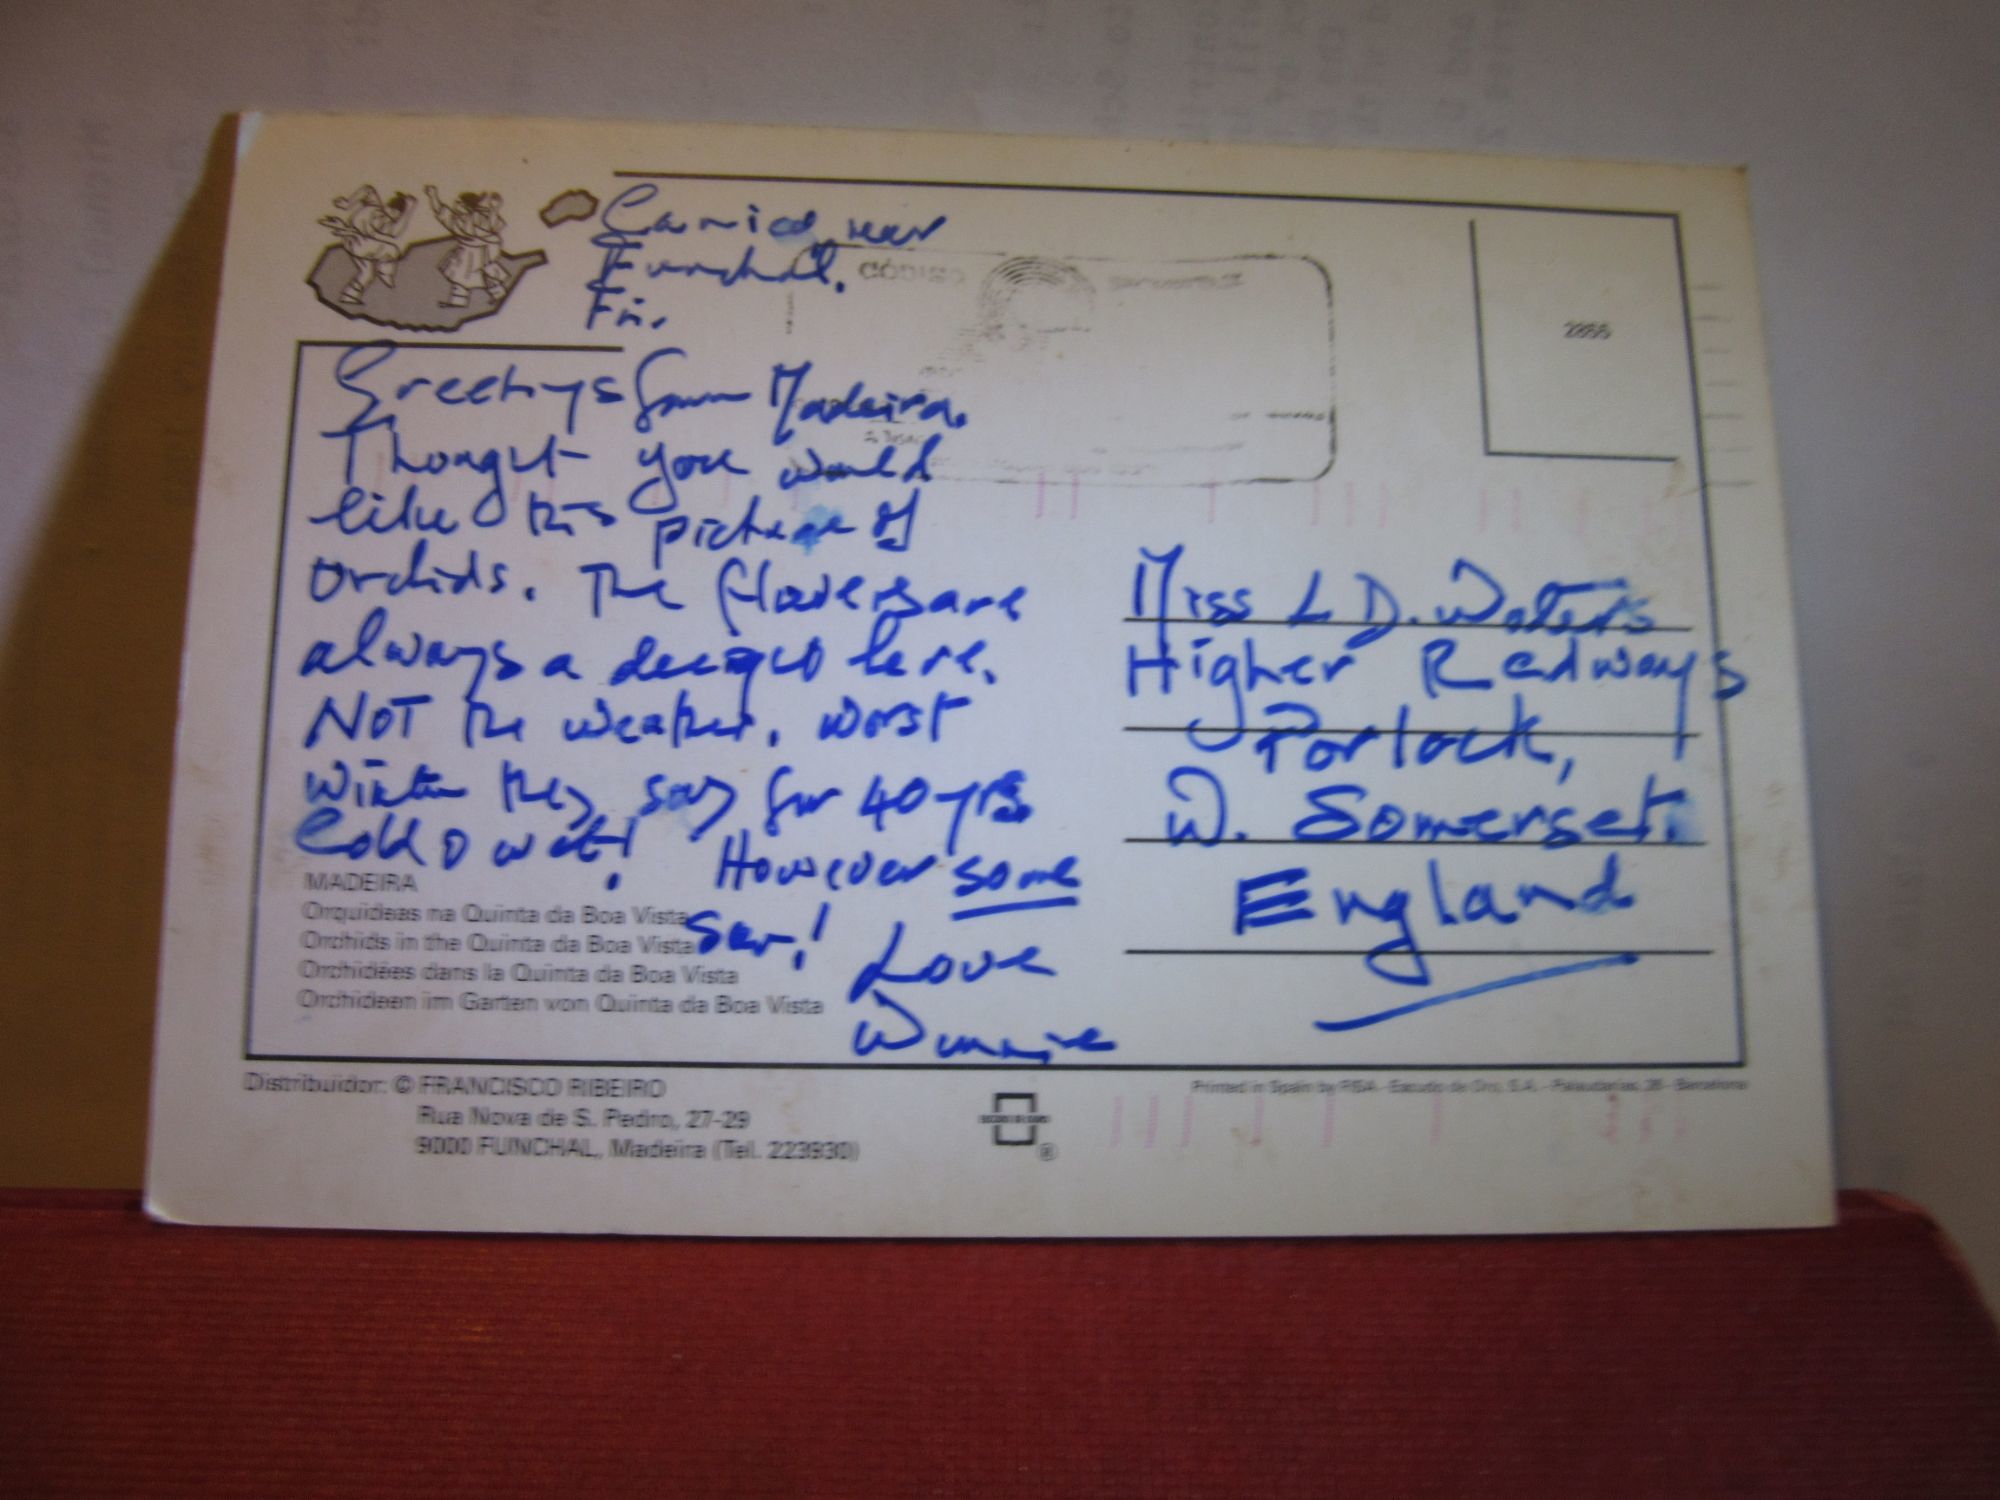 Canico near
Funchal.
Fri.
Greetings from Madeira.
Thought you would
like this picture of
orchids. The flowers are
always a delight here.
NOT the weather. Worst
winter they say for 40 yrs
Cold & wet! However some
Sun! Love
Winnie
CÓDIGO
2855
Miss L D. Waters
Higher Redways
Porlock,
W. Somerset.
England
MADEIRA
Orquídeas na Quinta da Boa Vista
Orchids in the Quinta da Boa Vista
Orchidées dans la Quinta da Boa Vista
Orchideen im Garten von Quinta da Boa Vista
Distribuidor: © FRANCISCO RIBEIRO
Rua Nova de S. Pedro, 27-29
9000 FUNCHAL, Madeira (Tel. 223930)
Printed in Spain by FISA - Escudo de Oro, S.A. - Palaudarias, 26 - Barcelona